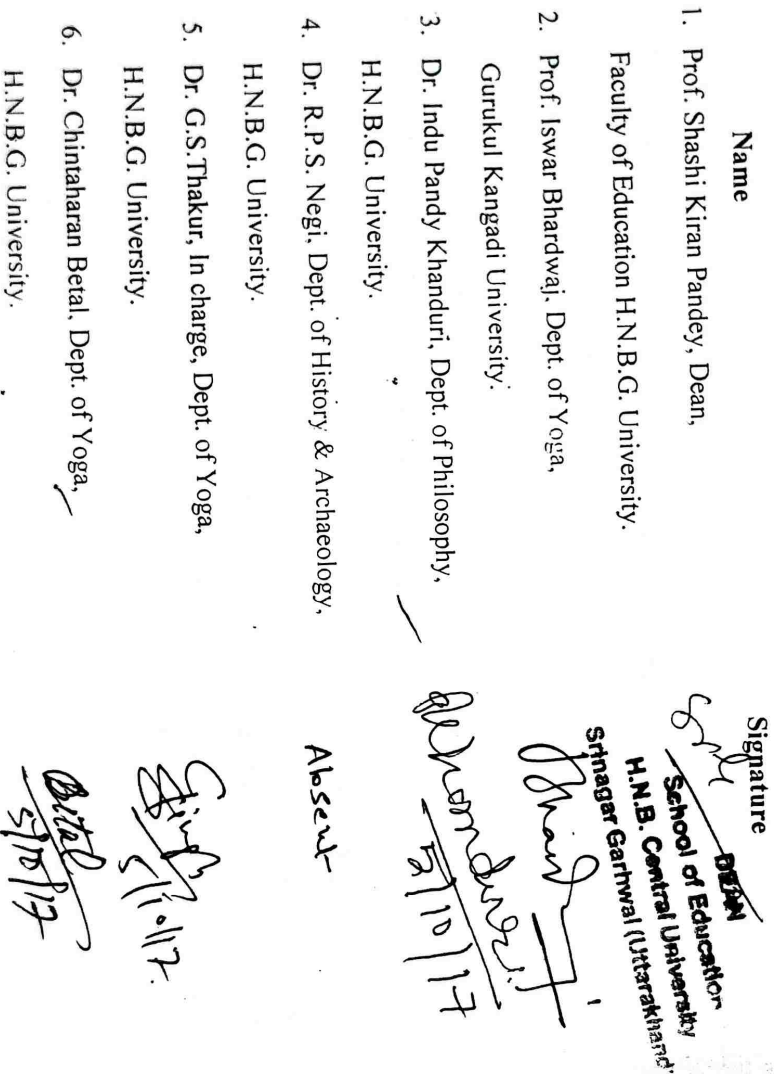 Name
Signature
1. Prof. Shashi Kiran Pandey, Dean,
Faculty of Education H.N.B.G. University.
DEAN
School of Education
H.N.B. Central University
Srinagar Garhwal (Uttarakhand)
2. Prof. Iswar Bhardwaj, Dept. of Yoga,
Gurukul Kangadi University.
3. Dr. Indu Pandy Khanduri, Dept. of Philosophy,
H.N.B.G. University.
5/10/17
4. Dr. R.P.S. Negi, Dept. of History & Archaeology,
H.N.B.G. University.
Absent
5. Dr. G.S.Thakur, In charge, Dept. of Yoga,
H.N.B.G. University.
5/10/17.
6. Dr. Chintaharan Betal, Dept. of Yoga,
H.N.B.G. University.
Betal
5/10/17